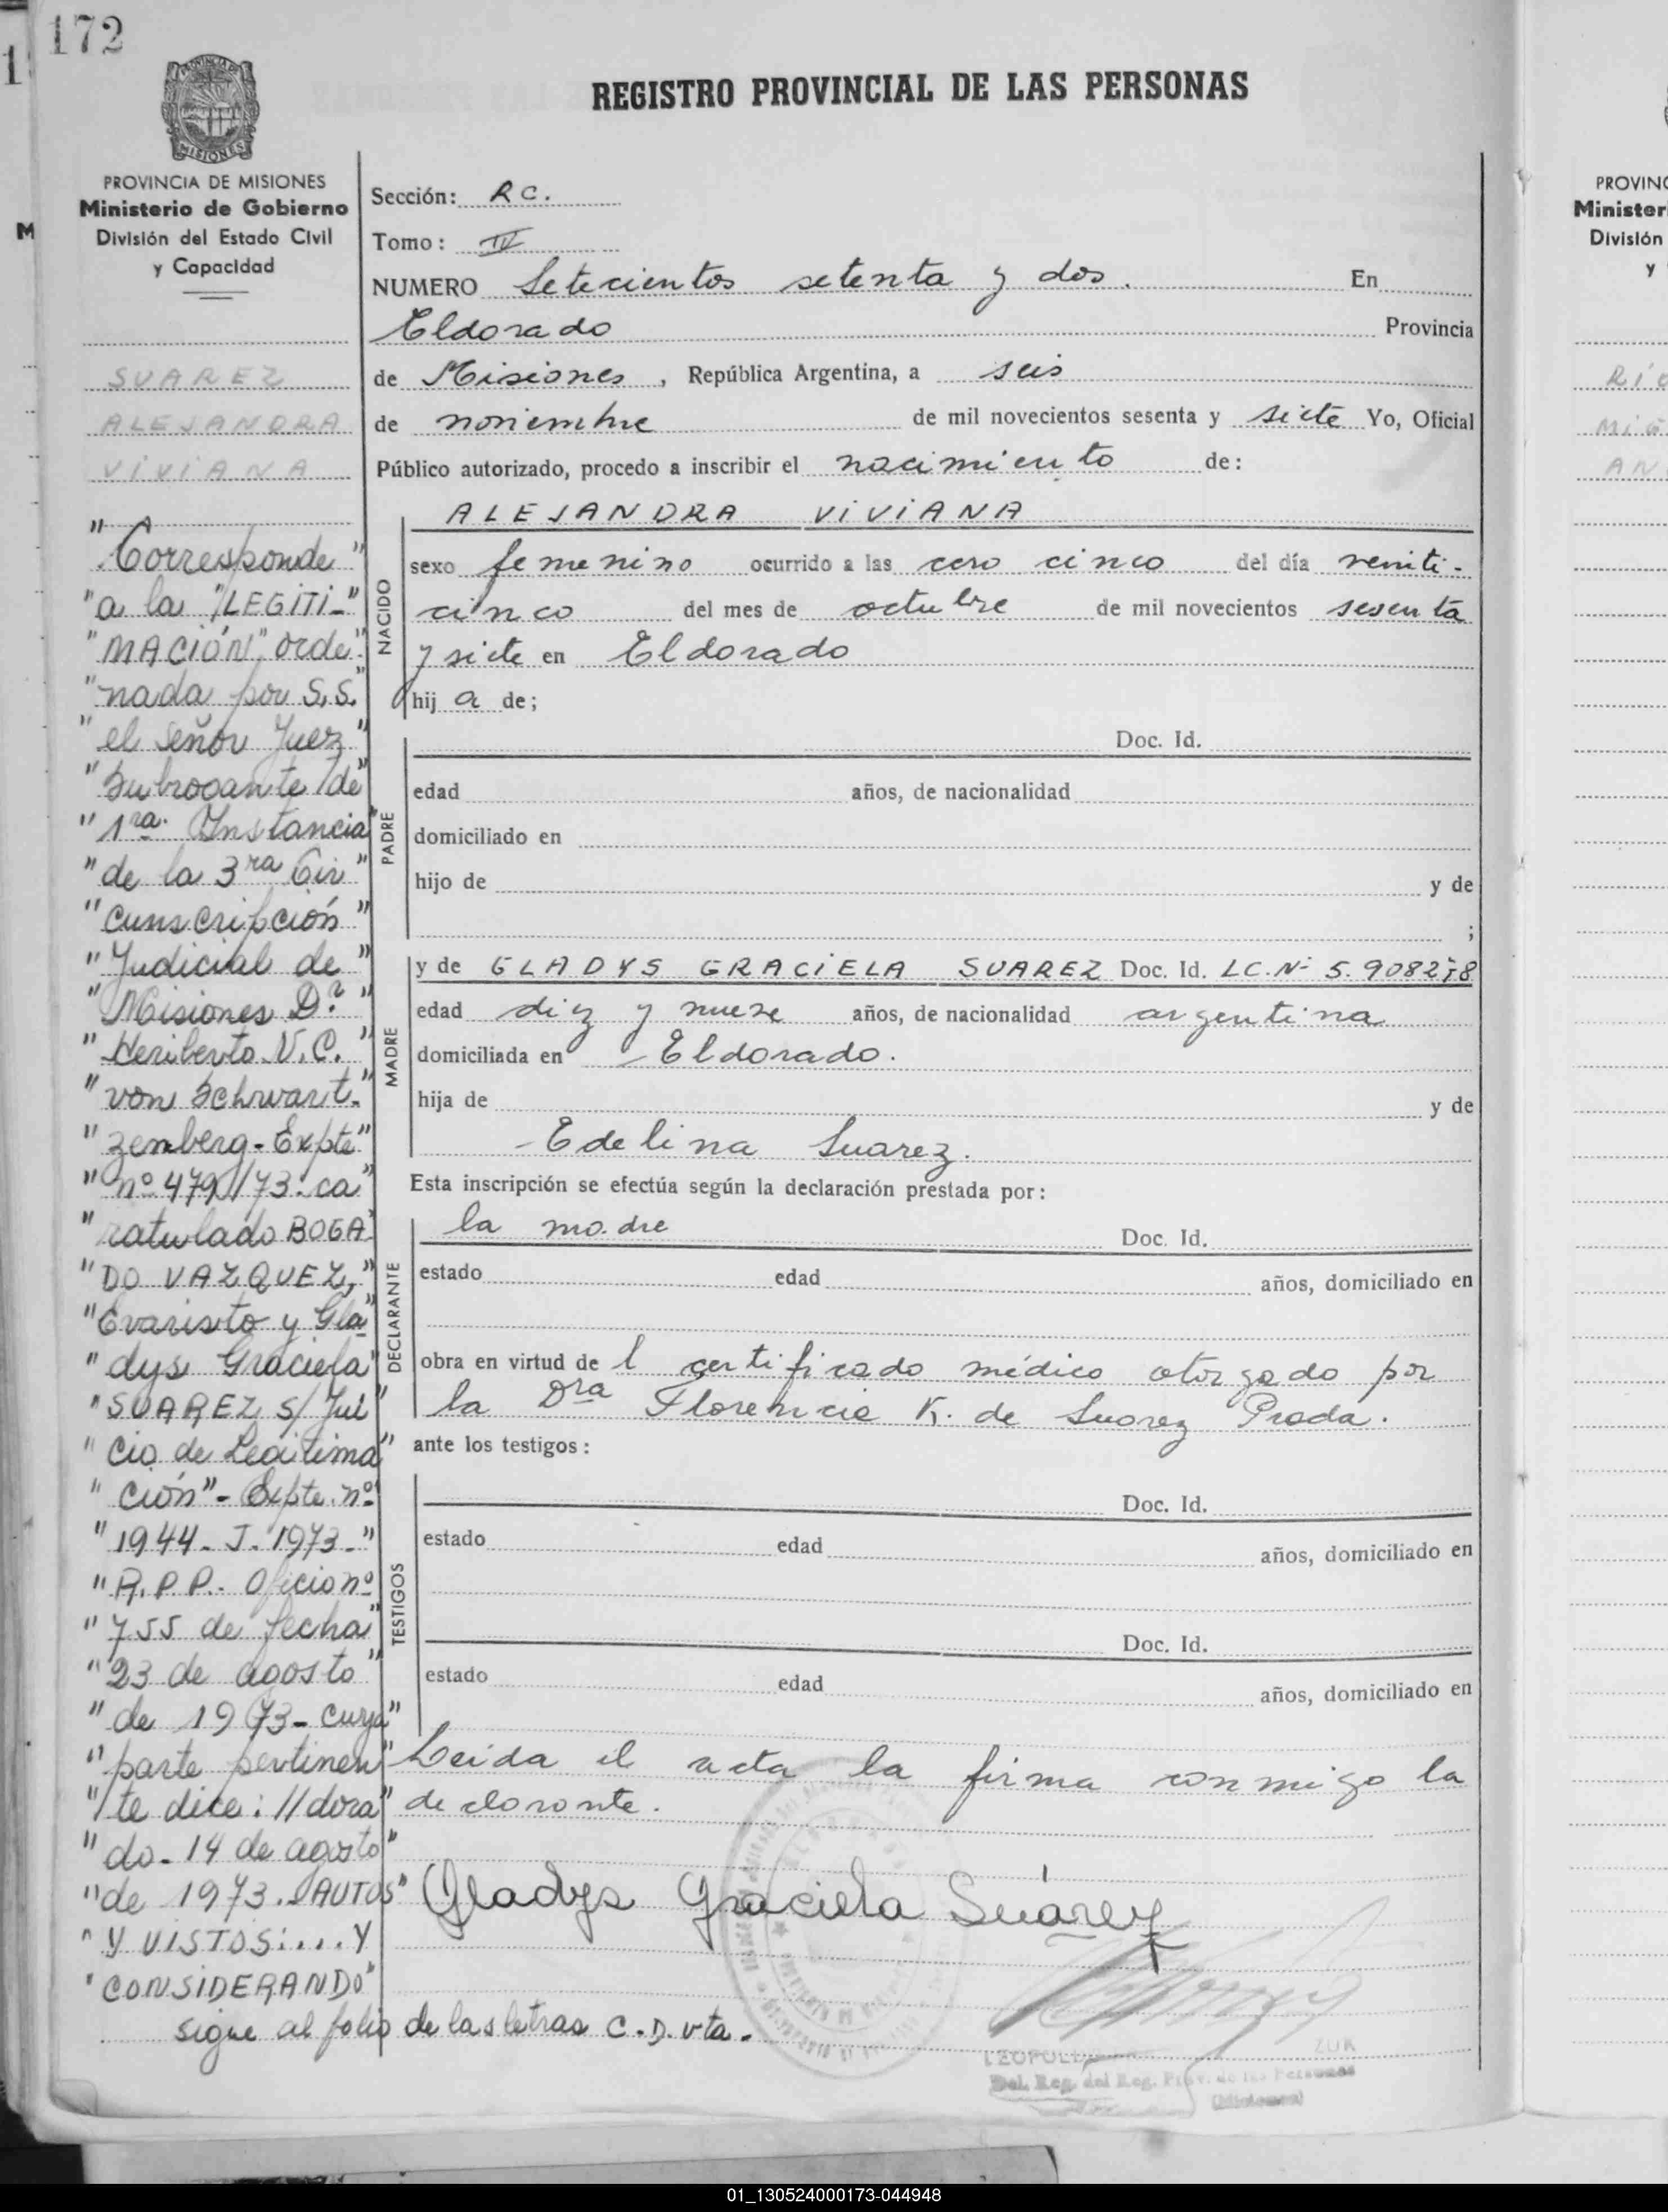 172
REGISTRO PROVINCIAL DE LAS PERSONAS
MISIONES
PROVINCIA DE MISIONES
Ministerio de Gobierno
División del Estado Civil
y Capacidad
SUAREZ
ALEJANDRA
VIVIANA
"Corresponde"
"a la "LEGITI-"
"MACIÓN" orde"
"nada por S.S."
"el señor Juez"
"Subrogante de"
"1ra. Instancia"
"de la 3ra Cir"
"cunscripción"
"Judicial de"
"Misiones Dr."
"Heriberto V.C."
"von Schwart-"
"zenberg - Expte"
"nº 479/73. ca"
"ratulado BOGA"
"DO VAZQUEZ,"
"Evaristo y Gla"
"dys Graciela"
"SUAREZ S/ Jui"
"cio de Legitima"
"ción" - Expte. nº
"1944 - J. 1973 -"
"R.P.P. Oficio nº
"755 de fecha"
"23 de agosto"
"de 1973 - cuya"
"parte pertinen"
"te dice: //dora"
"do - 14 de agosto"
"de 1973. AUTOS"
"Y VISTOS:....Y
"CONSIDERANDO"
sigue al folio de las letras C.D. vta.
Sección: RC.
Tomo: IV
NUMERO Setecientos setenta y dos. En
Eldorado Provincia
de Misiones, República Argentina, a seis
de noviembre de mil novecientos sesenta y siete Yo, Oficial
Público autorizado, procedo a inscribir el nacimiento de:
ALEJANDRA VIVIANA
NACIDO
sexo femenino ocurrido a las cero cinco del día veniti-
cinco del mes de octubre de mil novecientos sesenta
y siete en Eldorado
hij a de;
PADRE
Doc. Id.
edad años, de nacionalidad
domiciliado en
hijo de y de
;
MADRE
y de GLADYS GRACIELA SUAREZ Doc. Id. LC.Nº 5.908278
edad diez y nueve años, de nacionalidad argentina
domiciliada en Eldorado.
hija de y de
- Edelina Suarez.
Esta inscripción se efectúa según la declaración prestada por:
DECLARANTE
la madre Doc. Id.
estado edad años, domiciliado en
obra en virtud de l certificado médico otorgado por
la Dra Florencia K. de Suarez Prada.
ante los testigos:
TESTIGOS
Doc. Id.
estado edad años, domiciliado en
Doc. Id.
estado edad años, domiciliado en
Leida el acta la firma conmigo la
declarante.
Gladys Graciela Suárez
Del. Reg. del Reg. Prov. de las Personas
(Misiones)
PROVINC
Minister
División
y
01_130524000173-044948